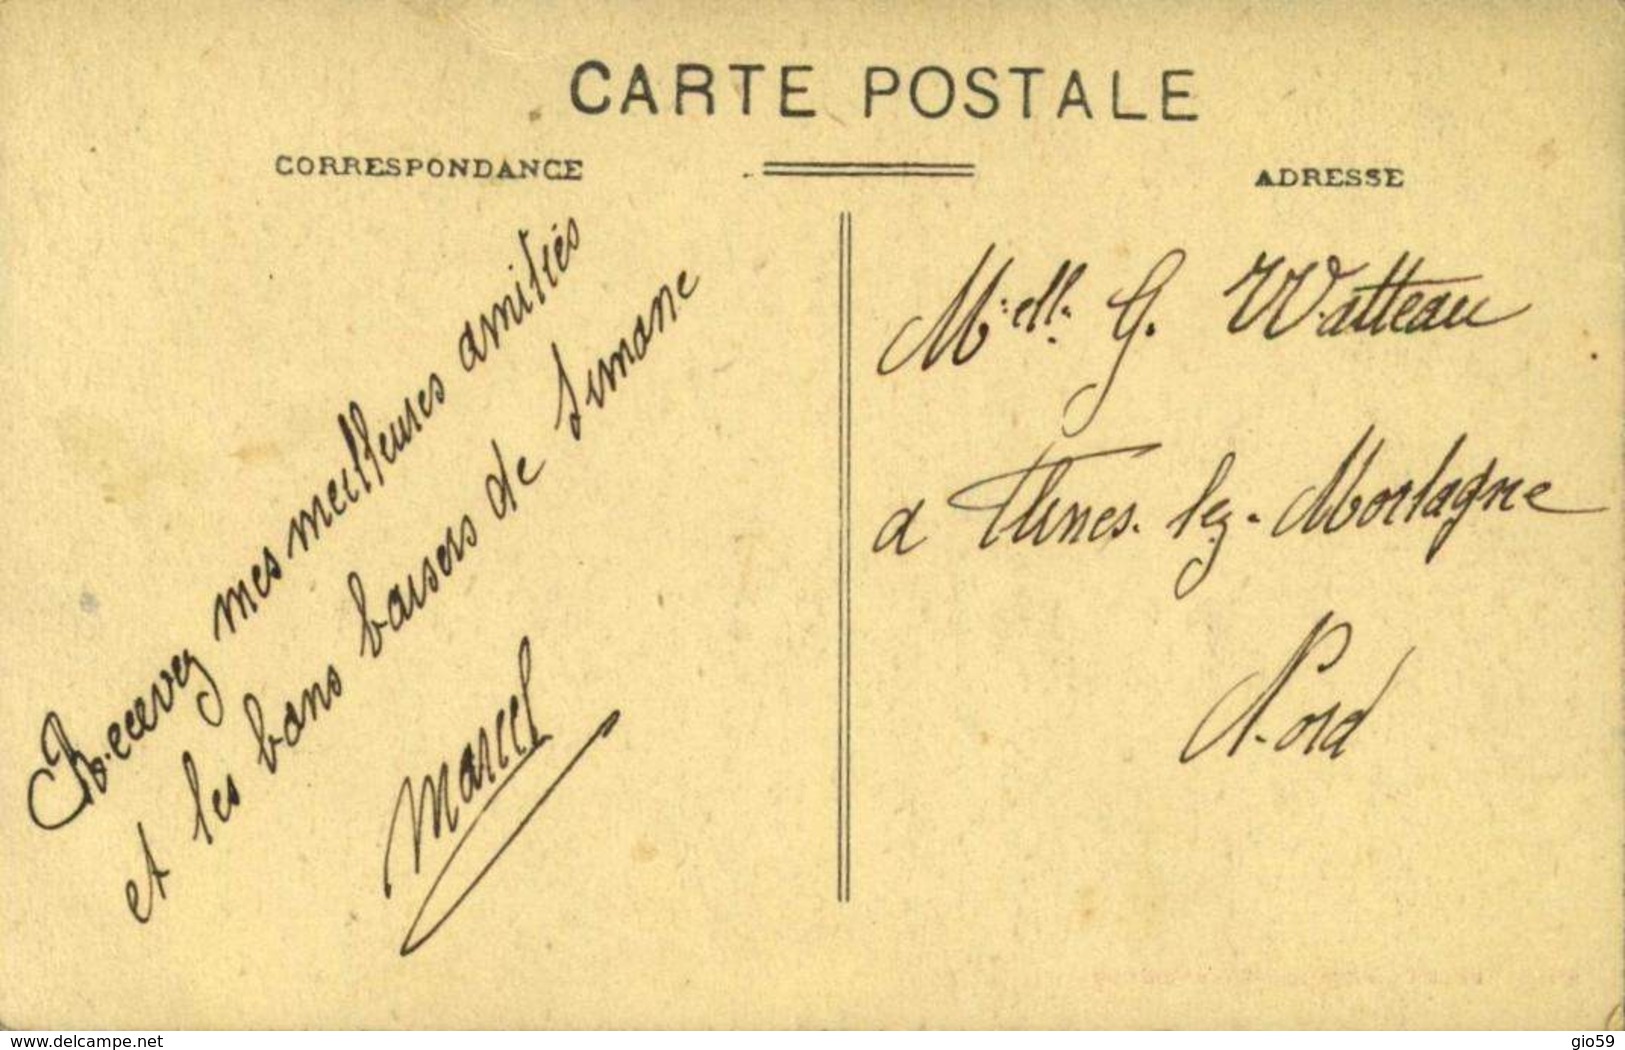 CARTE POSTALE
CORRESPONDANCE
ADRESSE
Recevez mes meilleures amitiés
et les bons baisers de Simone
Marcel
Melle G. Watteau
a Flines. lez. Mortagne
Nord
www.delcampe.net
gio59